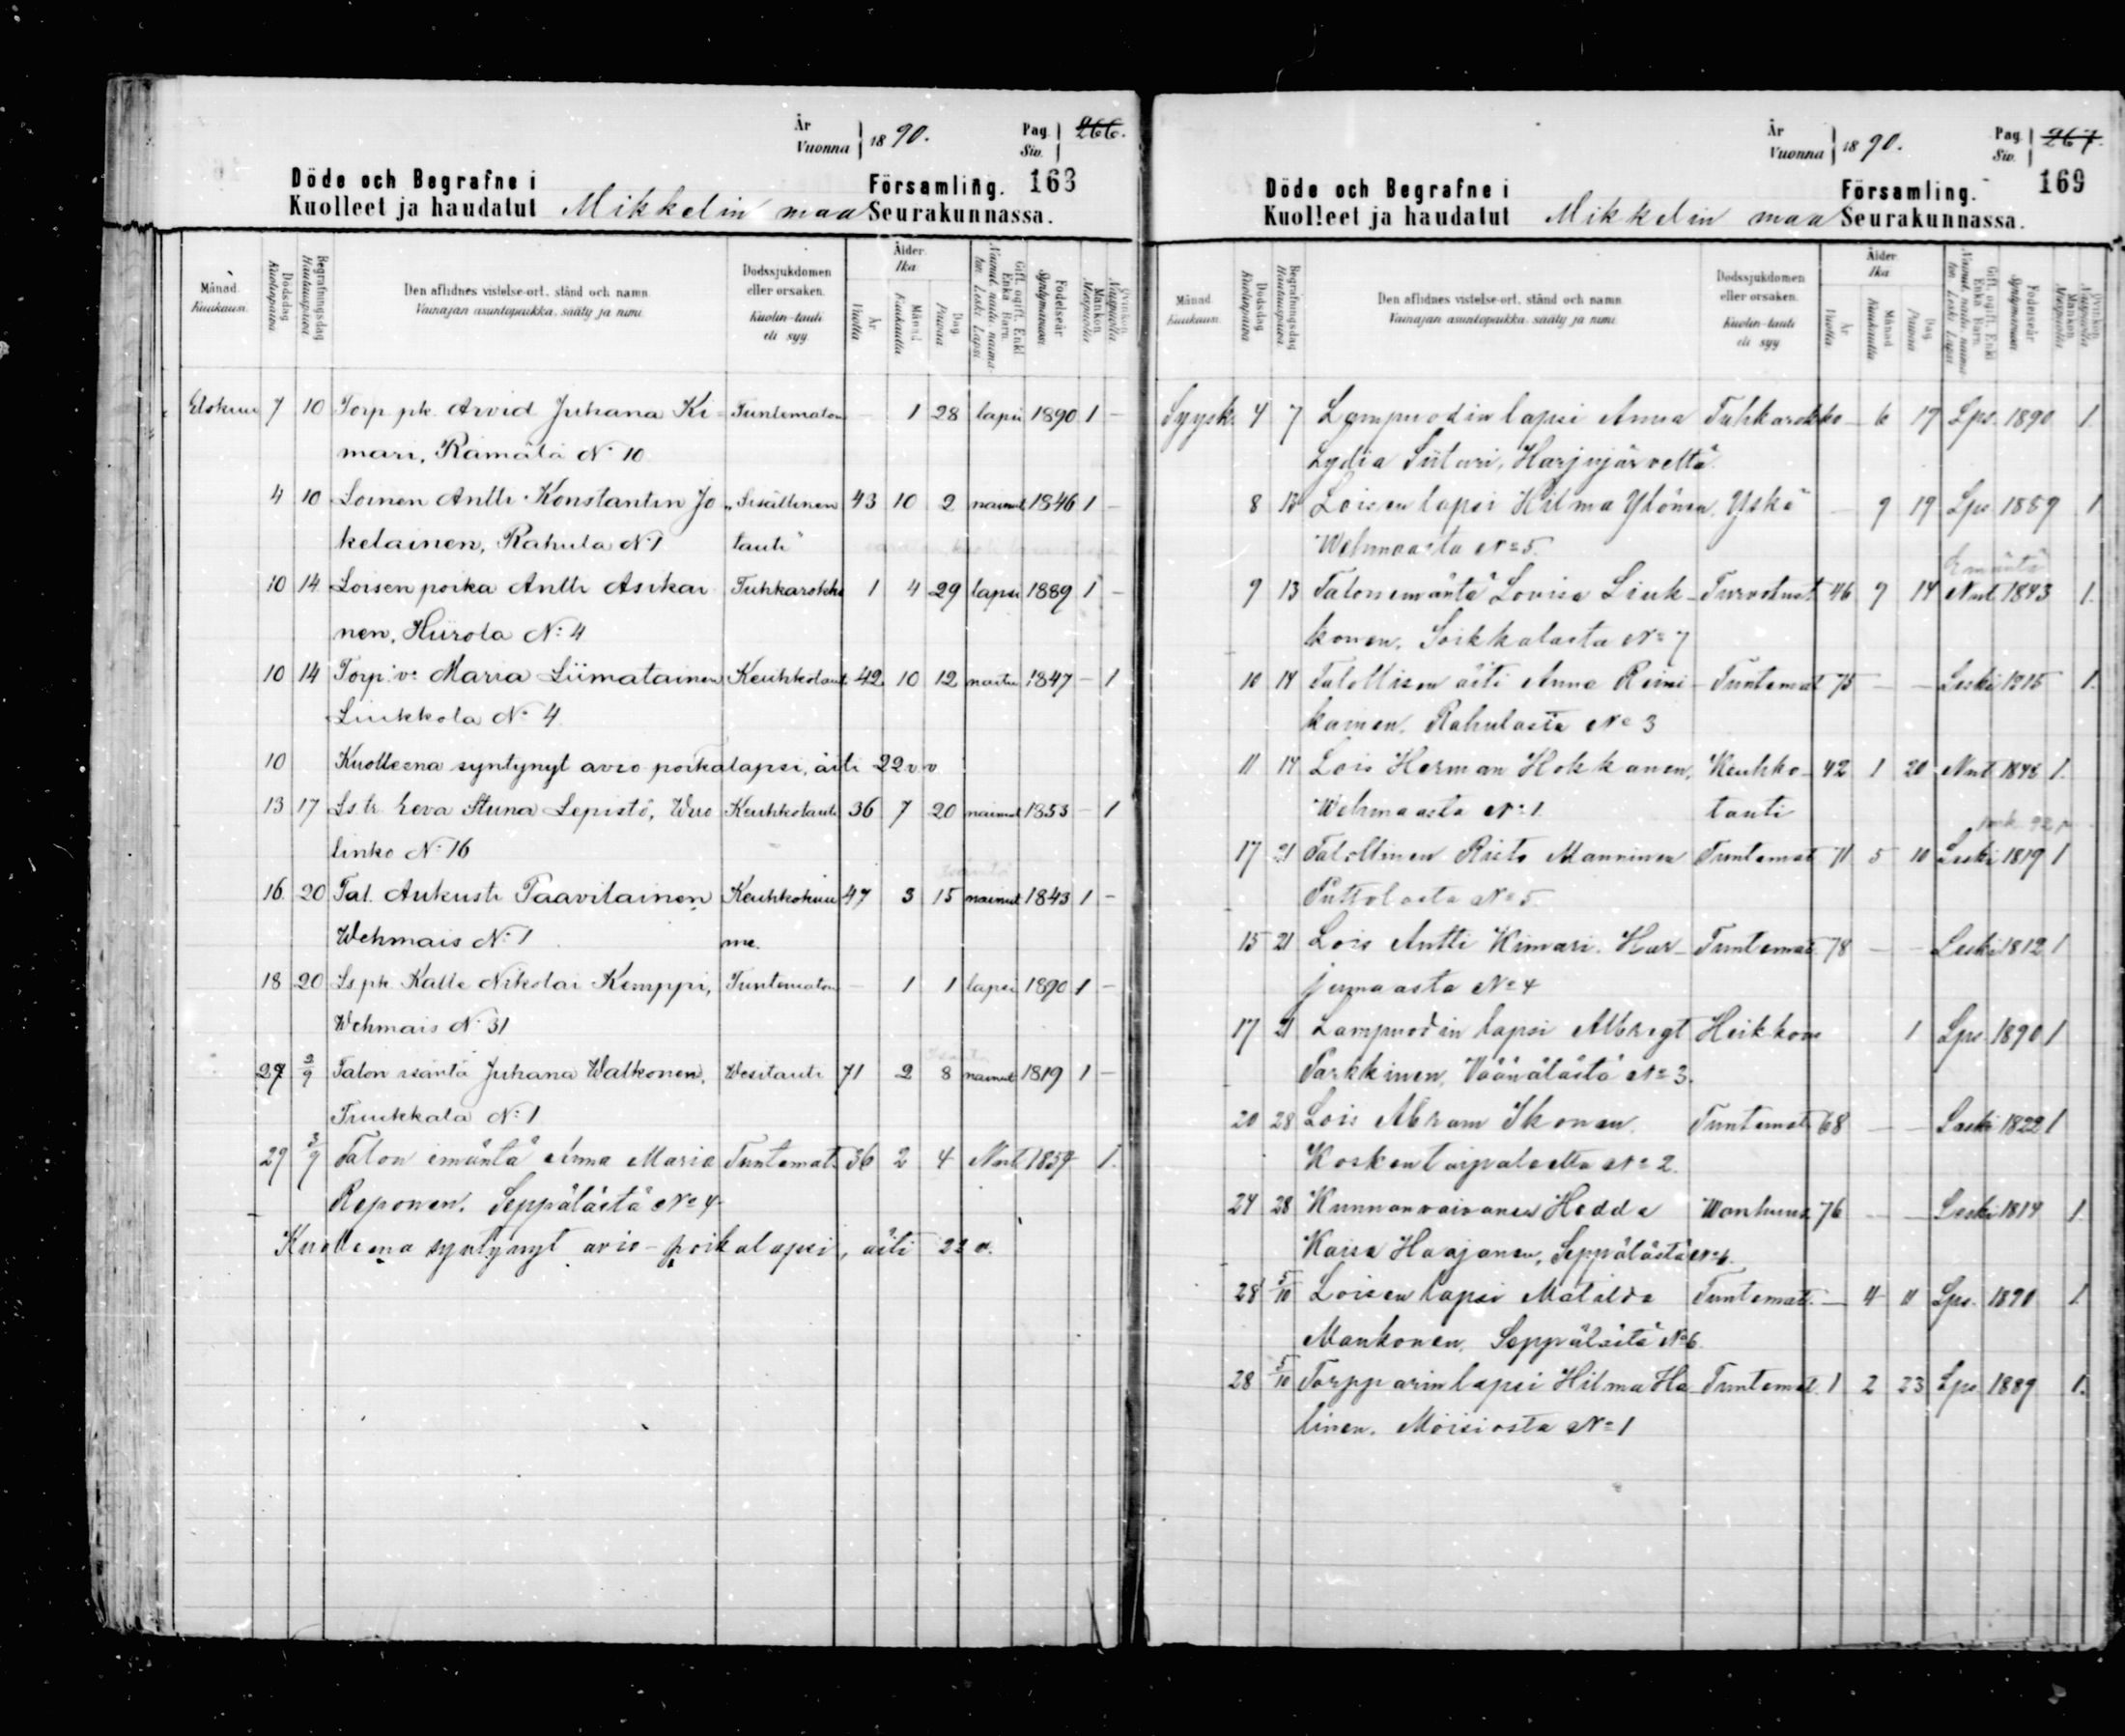 År
Vuonna 1890.
Pag.
Siv. 266.
Döde och Begrafne i Församling. 163
Kuolleet ja haudatut Mikkelin maa Seurakunnassa.
Månad. Kuukausi.
Dödsdag Kuolinpäivä
Begrafningsdag Hautauspäivä
Den aflidnes vistelse-ort, stånd och namn.
Vainajan asuntopaikka, sääty ja nimi.
Dödssjukdomen eller orsaken.
Kuolin-tauti eli syy
Ålder. Ikä
År Vuotta
Månad Kuukautta
Dag Päivää
Gift, ogift, Enkl. Enka. Barn.
Födelseår Syntymävuosi
Mankön. Miespuolia
Qvinkön. Naispuolia
Elokuu 7 10 Torp. pk. Arvid Juhana Ki- Tuntematon — 1 28 lapsi 1890 1 —
mari, Rämälä N:o 10
4 10 Loinen Antti Konstantin Jo „Sisällinen 43 10 2 nainut 1846 1 —
kelainen, Rahula N:1 tauti"
10 14 Loisen poika Antti Asikai Tuhkarokko 1 4 29 lapsi 1889 1 —
nen, Hiirola N:4
10 14 Torp. v: Maria Liimatainen Keuhkotaut. 42 10 12 naitu 1847 — 1
Liukkola N:4
10 Kuolleena syntynyt avio poikalapsi, äiti 22 v. v
13 17 Ls. tr. Eeva Stiina Lepistö, Wuo Keuhkotauti 36 7 20 nainut 1853 — 1
linko N:16
16 20 Tal. Aukusti Paavilainen Keuhkokuu 47 3 15 nainut 1843 1 —
Wehmais N:1 me.
18 20 Ls. pk. Kalle Nikolai Kemppi, Tuntematon — 1 1 lapsi 1890 1 —
Wehmais N:31
27 3/9 Talon isäntä Juhana Walkonen, Wesitauti 71 2 8 nainut 1819 1 —
Truukkala N:1
29 3/9 Talon emäntä Anna Maria Tuntemat. 36 2 4 Nnt 1854 1.
Reponen. Seppälästä No 4
Kuolleena syntynyt avio-poikalapsi, äiti 22 v.
År
Vuonna 1890.
Pag.
Siv. 267.
Döde och Begrafne i Församling. 169
Kuolleet ja haudatut Mikkelin maa Seurakunnassa.
Månad. Kuukausi.
Dödsdag Kuolinpäivä
Begrafningsdag Hautauspäivä
Den aflidnes vistelse-ort, stånd och namn.
Vainajan asuntopaikka, sääty ja nimi.
Dödssjukdomen eller orsaken.
Kuolin-tauti eli syy
Ålder. Ikä
År Vuotta
Månad Kuukautta
Dag Päivää
Gift, ogift, Enkl. Enka. Barn.
Födelseår Syntymävuosi
Mankön. Miespuolia
Qvinkön. Naispuolia
Syysk. 4 7 Lampuodin lapsi Anna Tuhkarokko — 6 19 Lps. 1890 1.
Lydia Siitari, Harjujärveltä
8 13 Loisen lapsi Hilma Ylönen, Yskä — 9 19 Lps 1889 1
Wehmaasta No 5
Emäntä
9 13 Talonemäntä Lovisa Liuk- Turvotust 46 9 14 Nnt 1843 1.
konen, Soikkalasta No 7
10 14 Talollisen äiti Anna Reini- Tuntemat 75 — — Leski 1815 1.
kainen, Rahulasta No 3
11 14 Lois Herman Hokkanen, Keuhko- 42 1 20 Nnt 1848 1.
Wehmaasta No 1. tauti
17 21 Talollinen Risto Manninen Tuntemat 71 5 10 Leski 1819 1
No 5.
15 21 Lois Antti Kimari. Har- Tuntemat. 78 — — Leski 1812 1
jumaasta No 4
17 21 Lampuodin lapsi Albregt Heikkous 1 Lps 1890 1
Parkkinen, Väänälästä No 3.
20 28 Lois Abram Ikonen. Tuntemat 68 — — Leski 1822 1
Koskentaipaleelta No 2.
24 28 Kunnanvaivanen Hedda Wanhuus 76 — — Leski 1814 1.
Kaisa Haajanen, Seppälästä No 6.
28 5/10 Loisen lapsi Matilda Tuntemat. — 4 11 Lps. 1890 1.
Mankonen, Seppälästä No 6.
28 5/10 Torpparin lapsi Hilma Ha- Tuntemat. 1 2 23 Lps 1889 1.
linen. Moisiosta No 1